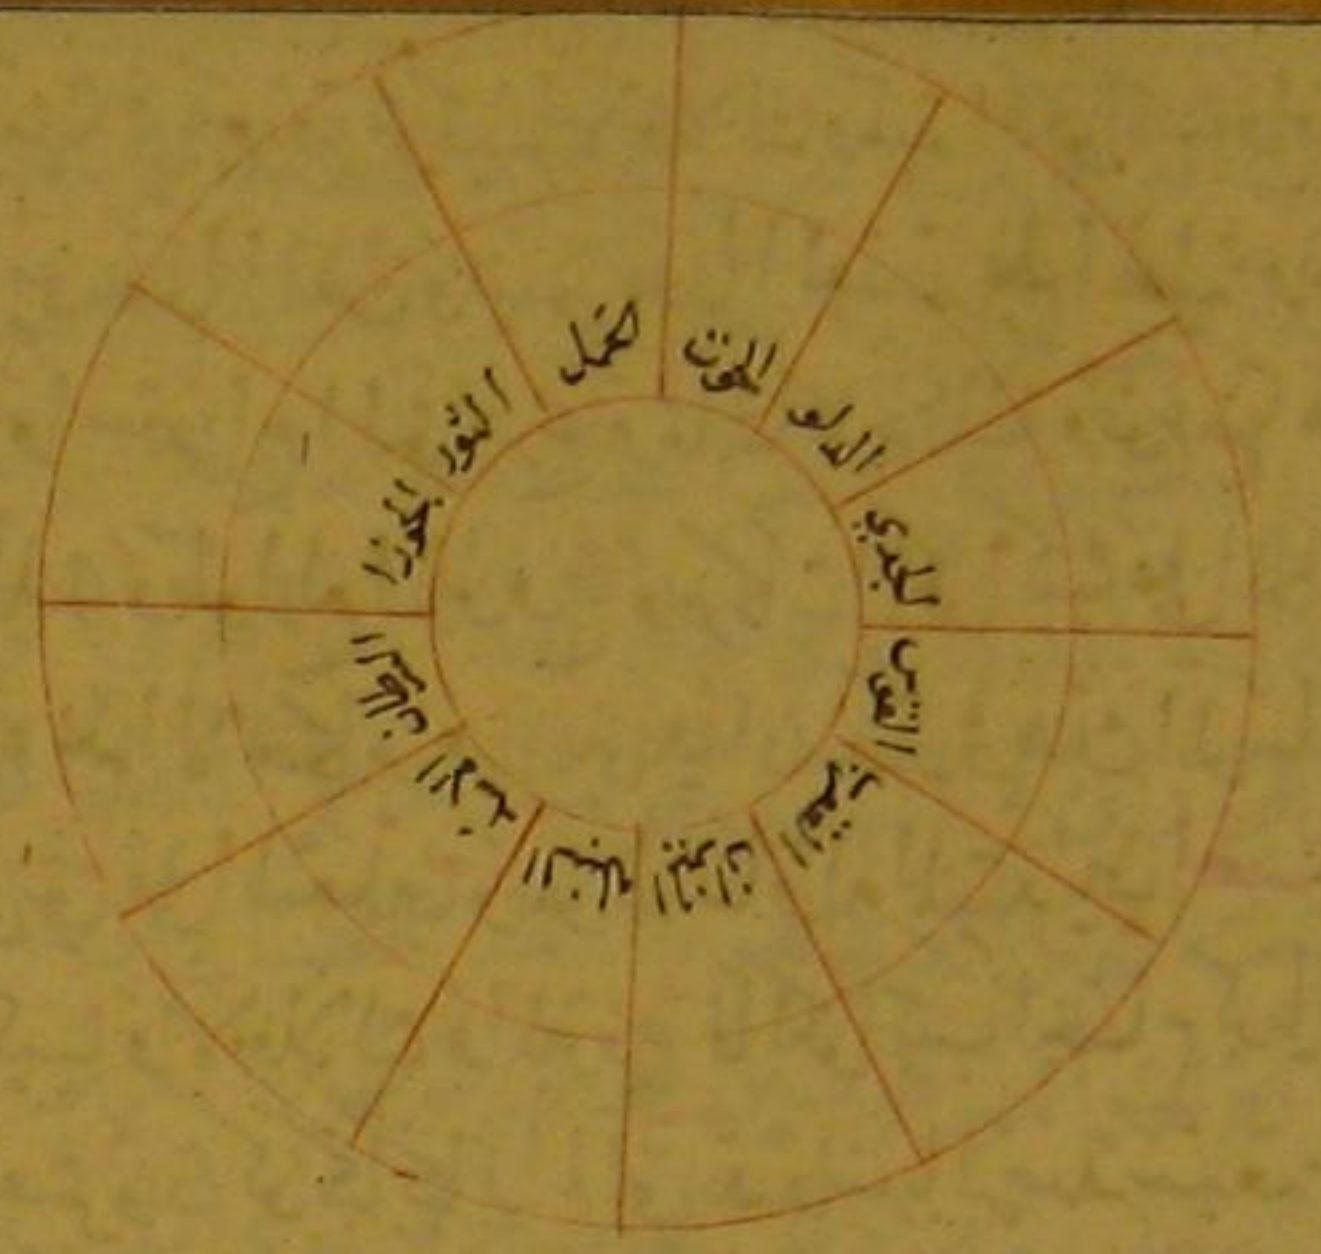 الحمل
الثور
الجوزا
السرطان
الاسد
السنبلة
الميزان
العقرب
القوس
الجدي
الدلو
الحوت